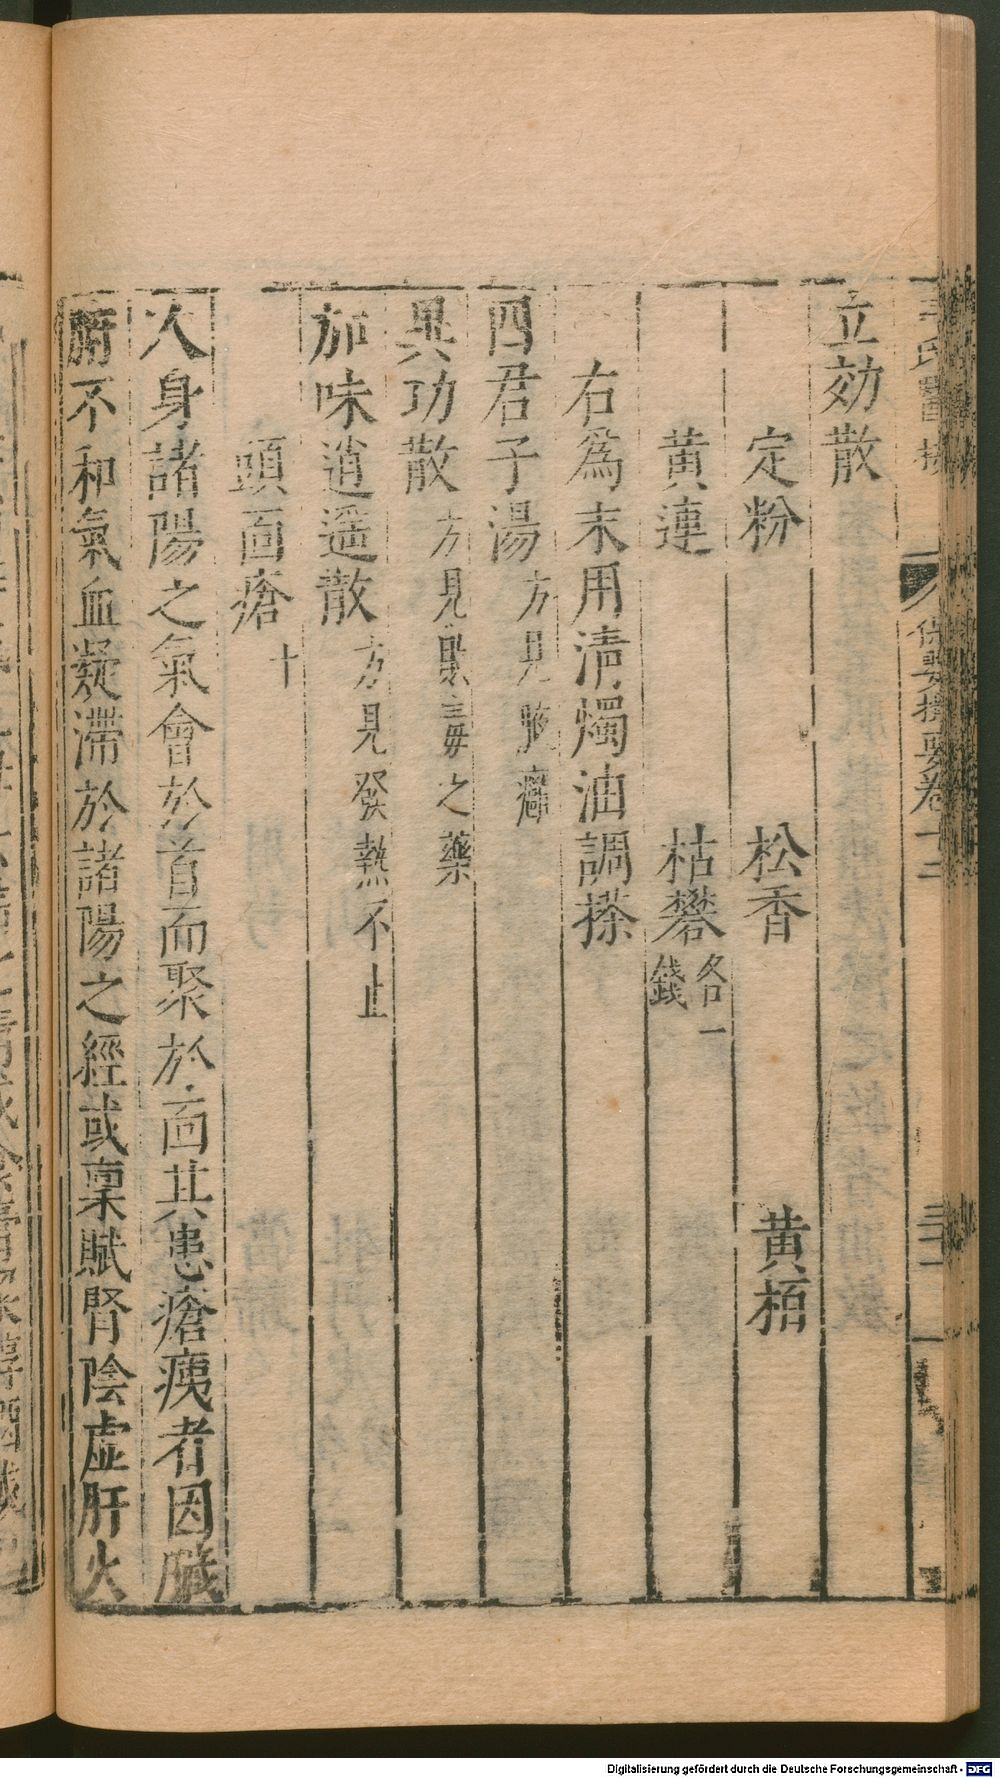 立効散
定粉　松香　黄栢
黄連　枯礬各一錢
右為末用清燭油調搽
四君子湯方見腋癰
異功散方見敷毒之藥
加味逍遥散方見發熱不止
頭面瘡十
人身諸陽之氣會於首而聚於面其患瘡痍者因臟
腑不和氣血凝滯於諸陽之經或禀賦腎陰虚肝火
氏醫
保嬰撮要卷十二
Digitalisierung gefördert durch die Deutsche Forschungsgemeinschaft - DFG